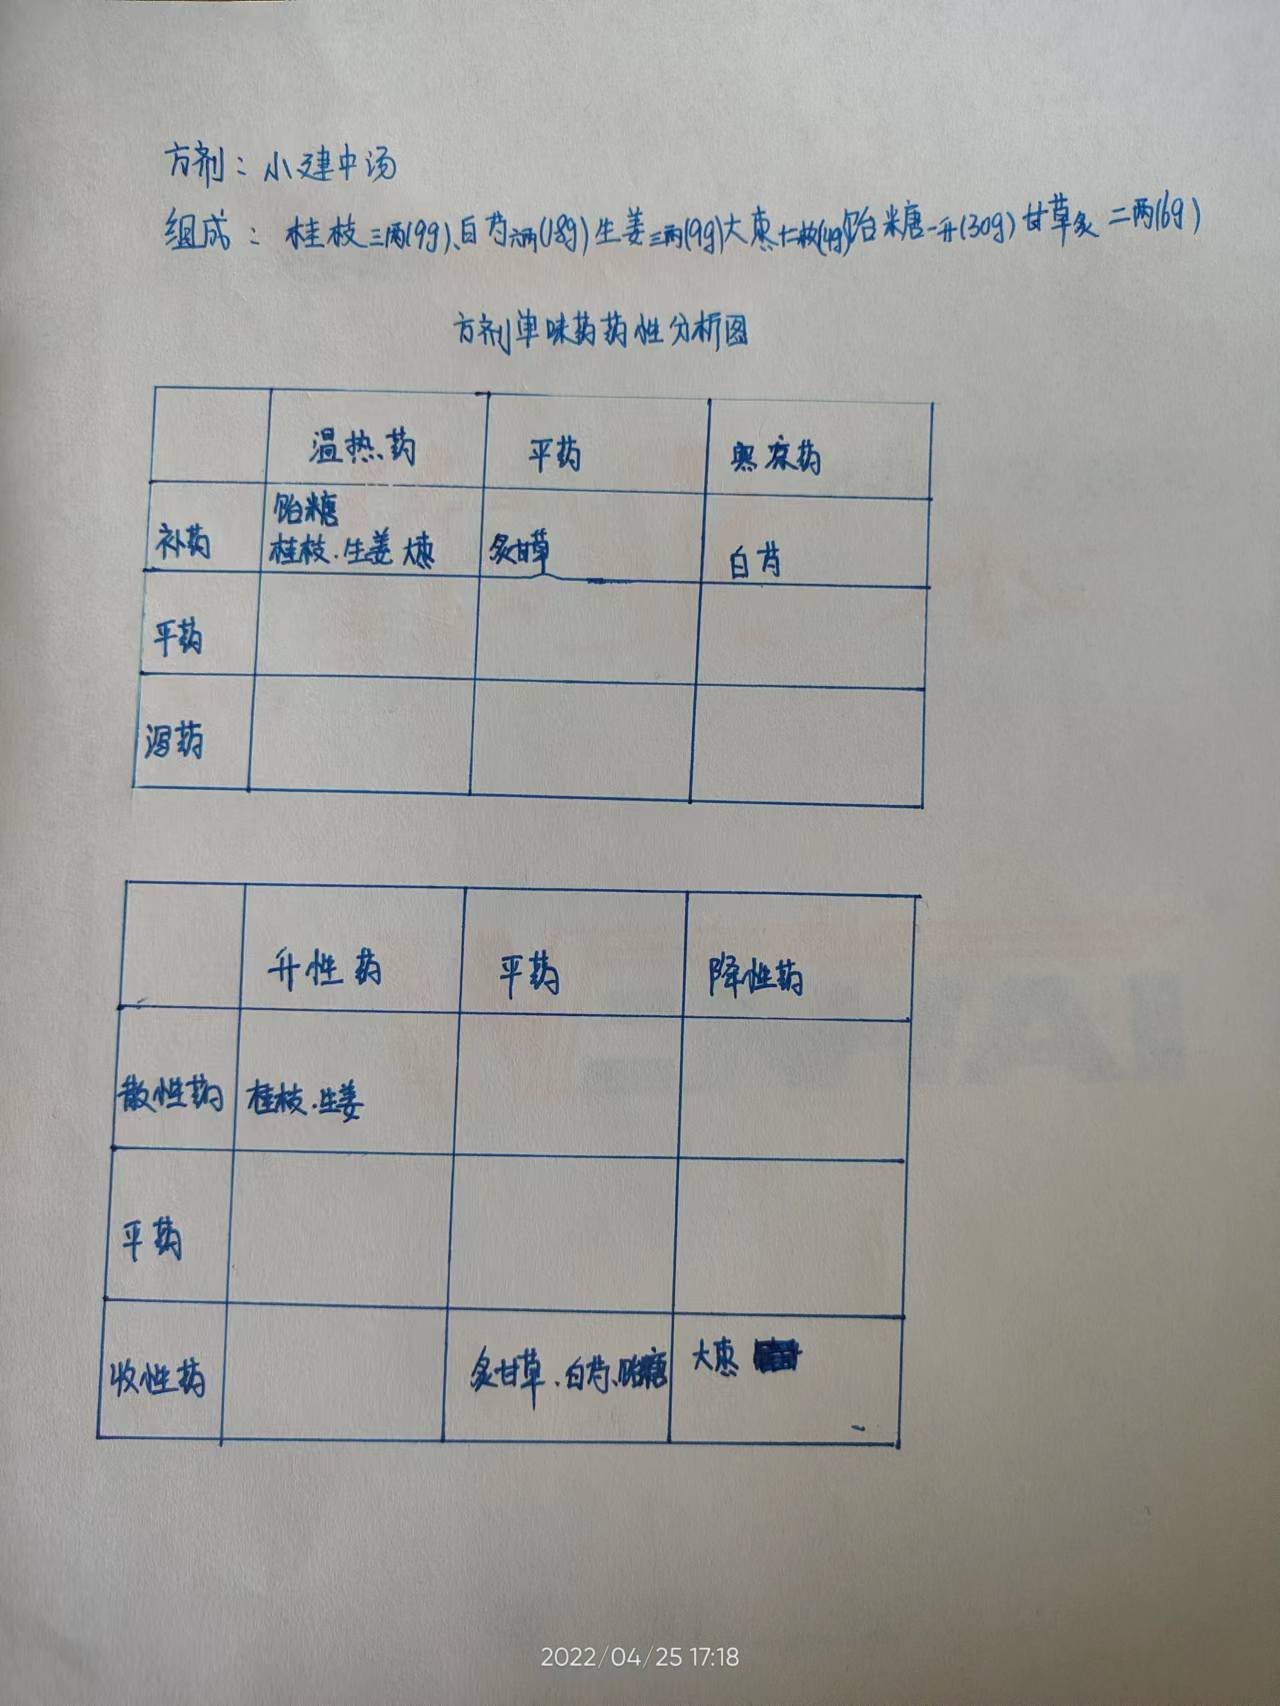 方剂：小建中汤
组成：桂枝三两(9g)、白芍六两(18g)生姜三两(9g)大枣十二枚(4g)饴糖一升(30g)甘草炙二两(6g)
方剂单味药药性分析图
温热药 平药 寒凉药
补药 饴糖 桂枝.生姜 大枣 炙甘草 白芍
平药
泻药
升性药 平药 降性药
散性药 桂枝.生姜
平药
收性药 炙甘草.白芍、饴糖 大枣
2022/04/25 17:18